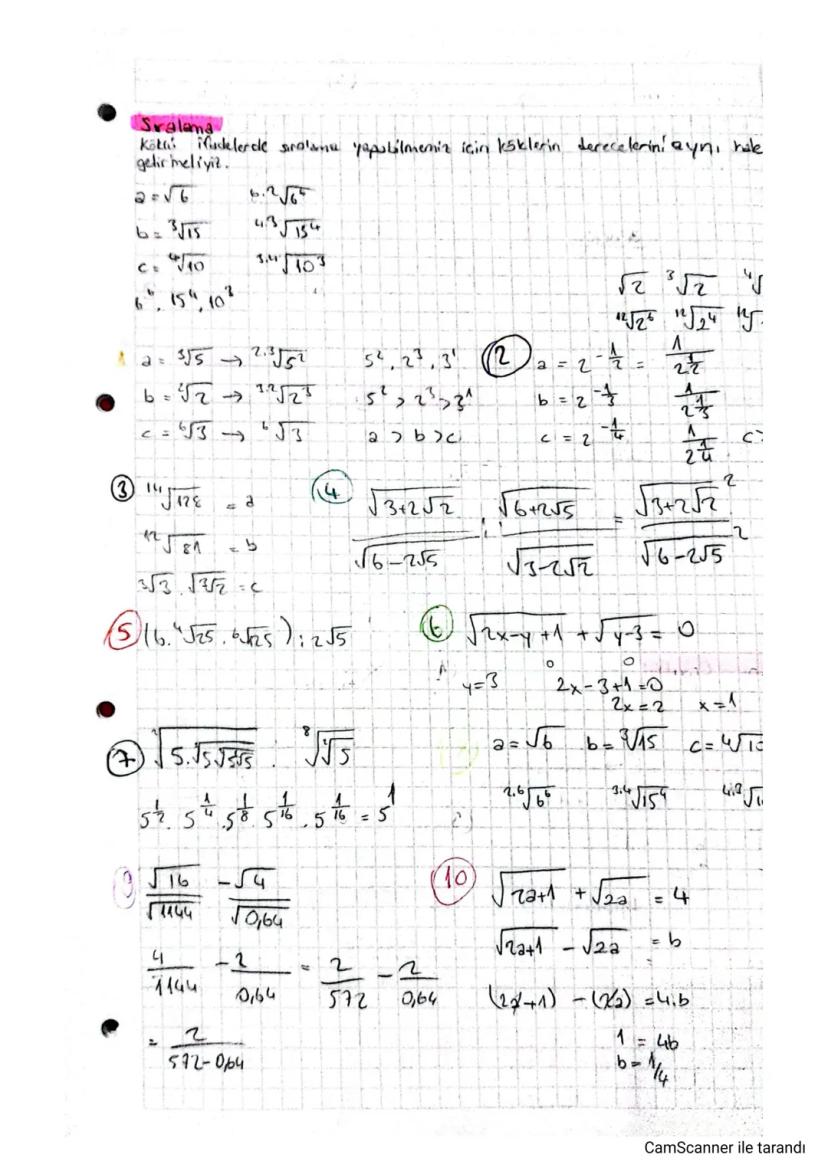 Sıralama
Köklü ifadelerde sıralama yapabilmemiz için köklerin derecelerini aynı hale
getirmeliyiz.
a = √6    6.2√6⁶
b = ³√15    4.3√15⁴
c = ⁴√10    3.4√10³
6⁶, 15⁴, 10³
√2  ³√2  ⁴√
¹²√2⁶  ¹²√2⁴  ¹²√
1  a = ³√5 → 2.3√5²    5², 2³, 3¹
b = ²√2 → 3.2√2³    5² > 2³ > 3¹
c = ⁶√3 → ⁶√3    a > b > c
2  a = 2^-1/2 = 1/2^1/2
b = 2^-1/3    1/2^1/3
c = 2^-1/4    1/2^1/4    c>
3  ¹⁴√128 = a
¹²√81 = b
³√3 . √³√2 = c
4  √3+2√2 / √6-2√5 : √6+2√5 / √3-2√2 = √3+2√2² / √6-2√5²
5  (6.⁴√25 . ⁶√25) : 2√5
6  √2x-y+1 + √y-3 = 0
0    0
y=3    2x-3+1=0
2x=2    x=1
7  √5.√5√5√5 : ⁸√√5
5^1/2 . 5^1/4 . 5^1/8 . 5^1/16 . 5^1/16 = 5^1
a = √6  b = ³√15  c = ⁴√10
2.6√6⁶  3.4√15⁴  4.3√1
9  √16/√1144 - √4/√0,64
4/1144 - 2/0,64 = 2/572 - 2/0,64
= 2/572-0,64
10  √2a+1 + √2a = 4
√2a+1 - √2a = b
(2a+1) - (2a) = 4.b
1 = 4b
b = 1/4
CamScanner ile tarandı